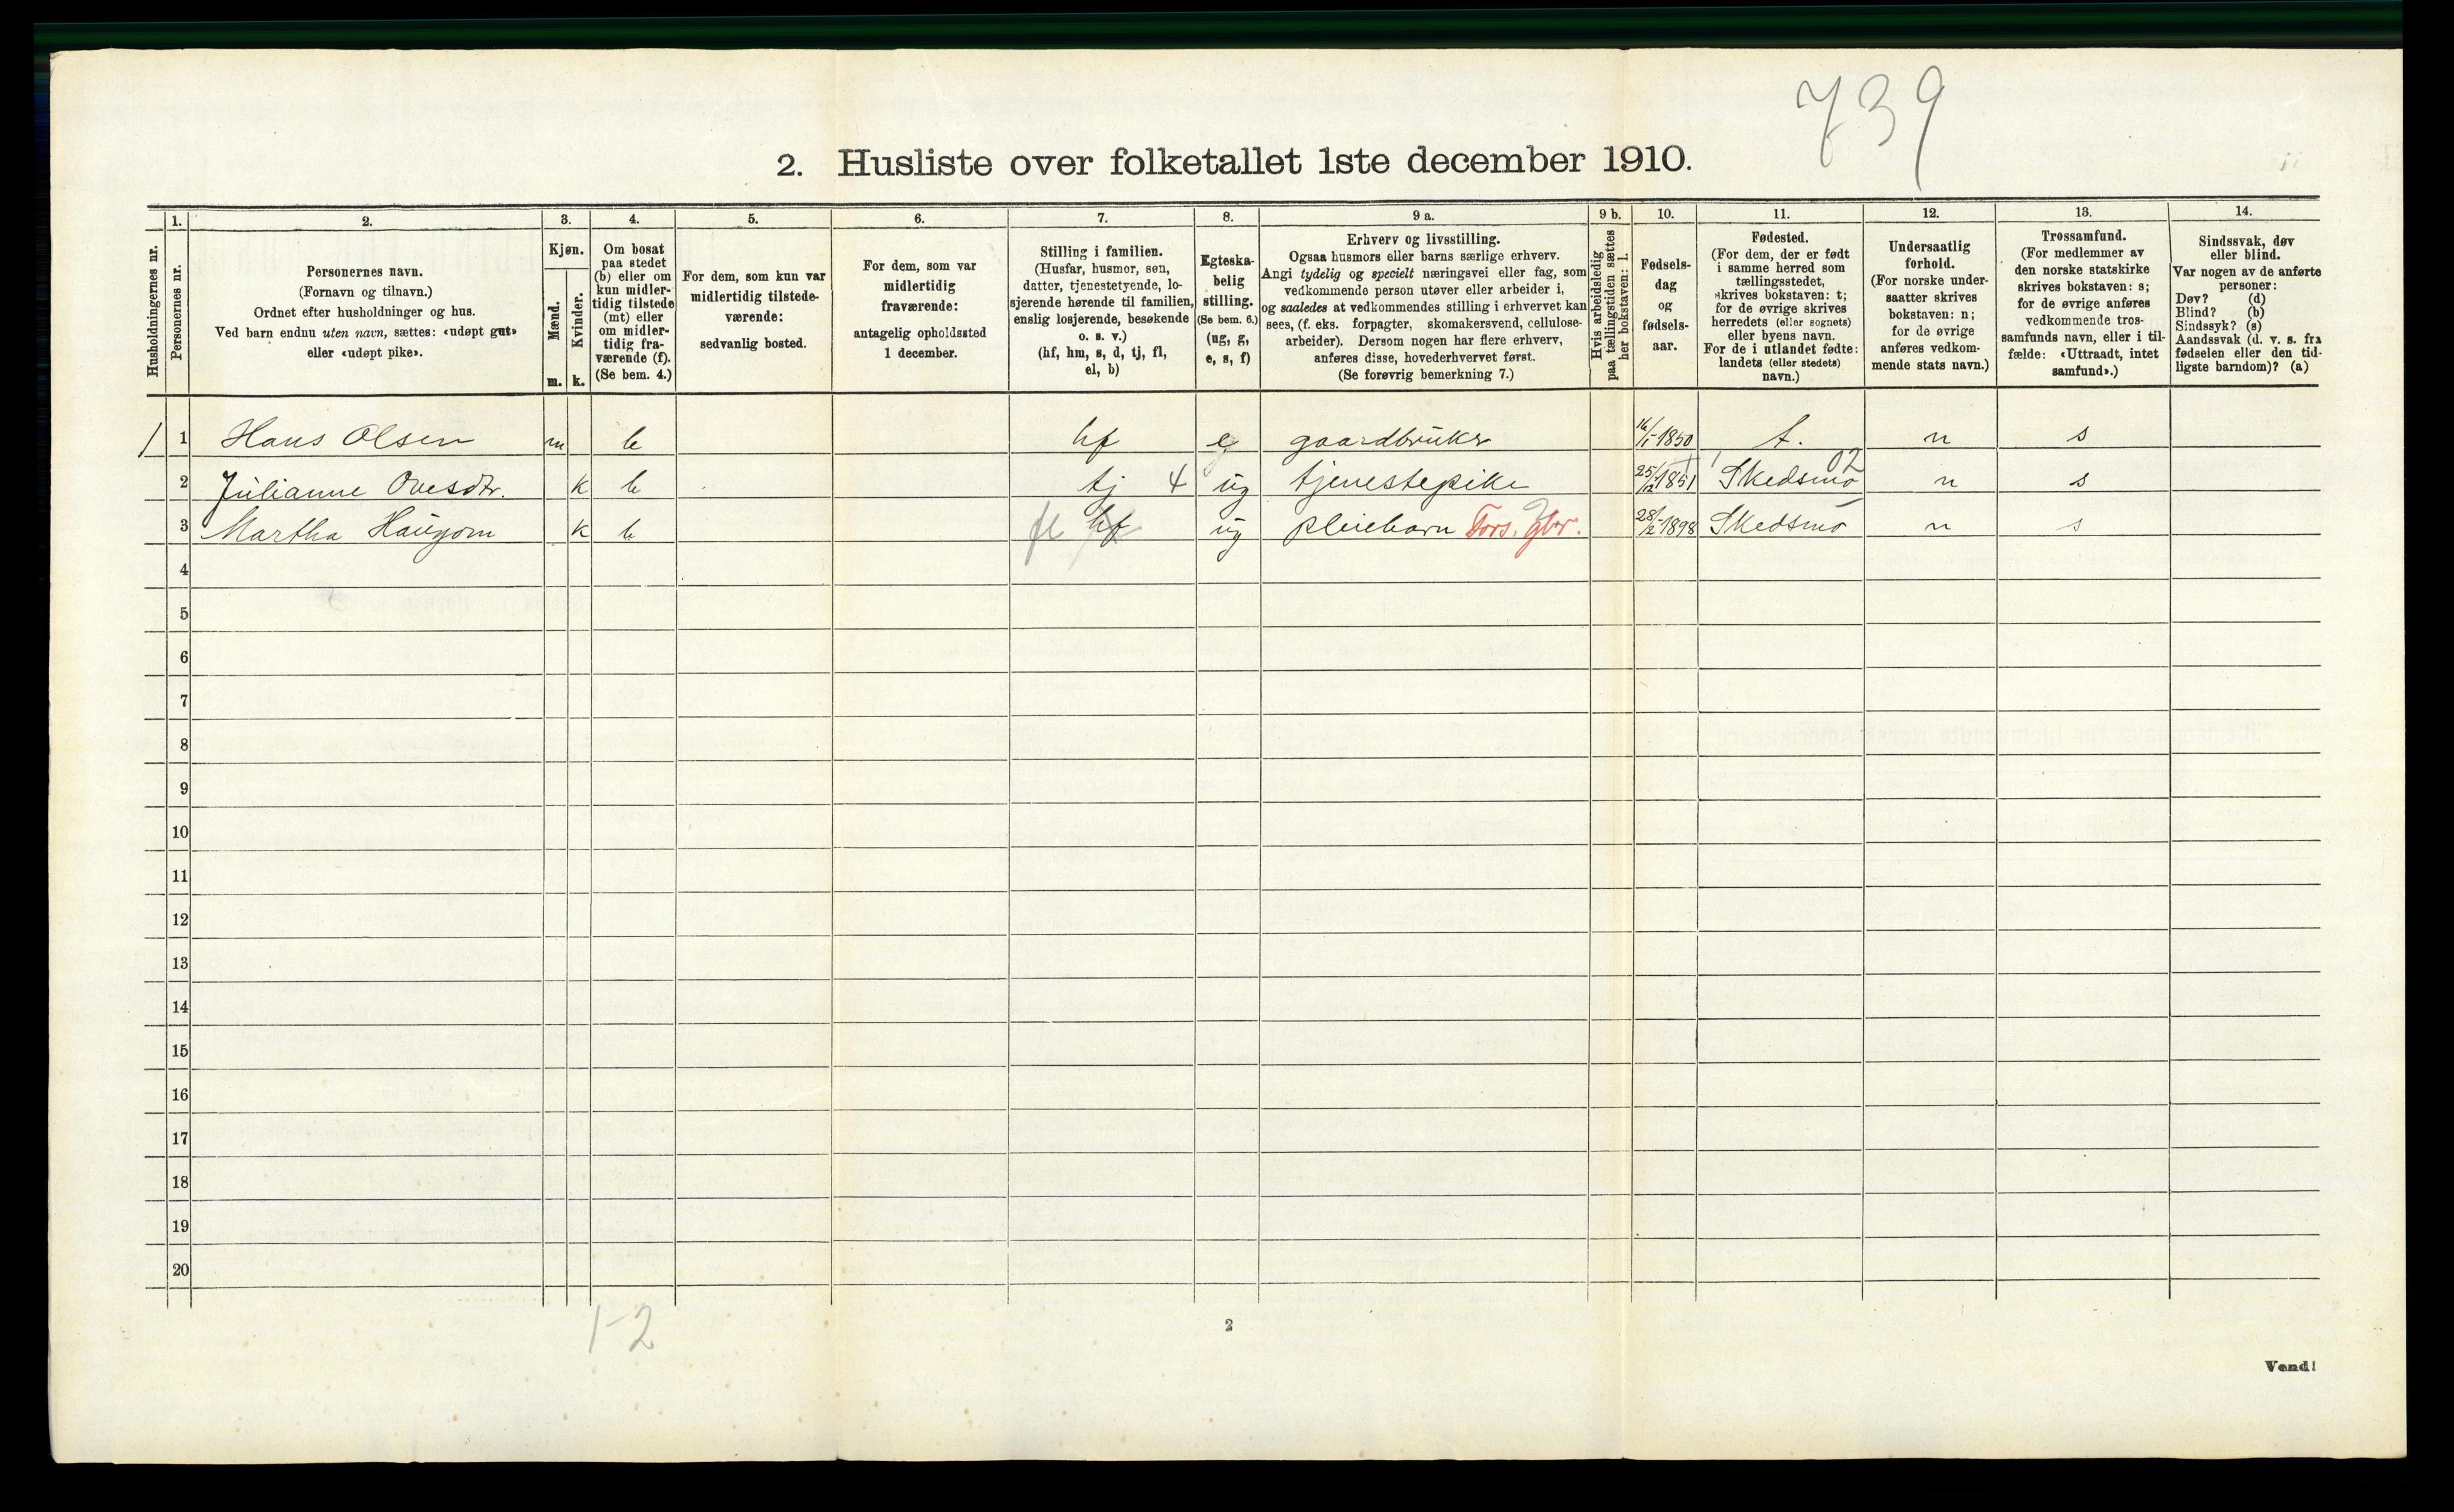 739
2. Husliste over folketallet 1ste december 1910.
Husholdningernes nr.
1.
Personernes nr.
2.
Personernes navn.
(Fornavn og tilnavn.)
Ordnet efter husholdninger og hus.
Ved barn endnu uten navn, sættes: «udøpt gut»
eller «udøpt pike».
3.
Kjøn.
Mænd.
Kvinder.
m. k.
4.
Om bosat
paa stedet
(b) eller om
kun midler-
tidig tilstede
(mt) eller
om midler-
tidig fra-
værende (f).
(Se bem. 4.)
5.
For dem, som kun var
midlertidig tilstede-
værende:
sedvanlig bosted.
6.
For dem, som var
midlertidig
fraværende:
antagelig opholdssted
1 december.
7.
Stilling i familien.
(Husfar, husmor, søn,
datter, tjenestetyende, lo-
sjerende hørende til familien,
enslig losjerende, besøkende
o. s. v.)
(hf, hm, s, d, tj, fl,
el, b)
8.
Egteska-
belig
stilling.
(Se bem. 6.)
(ug, g,
e, s, f)
9 a.
Erhverv og livsstilling.
Ogsaa husmors eller barns særlige erhverv.
Angi tydelig og specielt næringsvei eller fag, som
vedkommende person utøver eller arbeider i,
og saaledes at vedkommendes stilling i erhvervet kan
sees, (f. eks. forpagter, skomakersvend, cellulose-
arbeider). Dersom nogen har flere erhverv,
anføres disse, hovederhvervet først.
(Se forøvrig bemerkning 7.)
9 b.
Hvis arbeidsledig
paa tællingstiden sættes
her bokstaven: l.
10.
Fødsels-
dag
og
fødsels-
aar.
11.
Fødested.
(For dem, der er født
i samme herred som
tællingsstedet,
skrives bokstaven: t;
for de øvrige skrives
herredets (eller sognets)
eller byens navn.
For de i utlandet fødte:
landets (eller stedets)
navn.)
12.
Undersaatlig
forhold.
(For norske under-
saatter skrives
bokstaven: n;
for de øvrige
anføres vedkom-
mende stats navn.)
13.
Trossamfund.
(For medlemmer av
den norske statskirke
skrives bokstaven: s;
for de øvrige anføres
vedkommende tros-
samfunds navn, eller i til-
fælde: «Uttraadt, intet
samfund».)
14.
Sindssvak, døv
eller blind.
Var nogen av de anførte
personer:
Døv? (d)
Blind? (b)
Sindssyk? (s)
Aandssvak (d. v. s. fra
fødselen eller den tid-
ligste barndom)? (a)
1 1 Hans Olsen m b hf e gaardbruker 16/1-1850 t. n s
02
2 Julianne Ovesdtr. k b tj 4 ug tjenestepike 25/12-1851 Skedsmo n s
3 Martha Haugom k b fl hf ug pleiebarn Fors. gbr. 28/2-1898 Skedsmo n s
4
5
6
7
8
9
10
11
12
13
14
15
16
17
18
19
20
1-2
2
Vend!